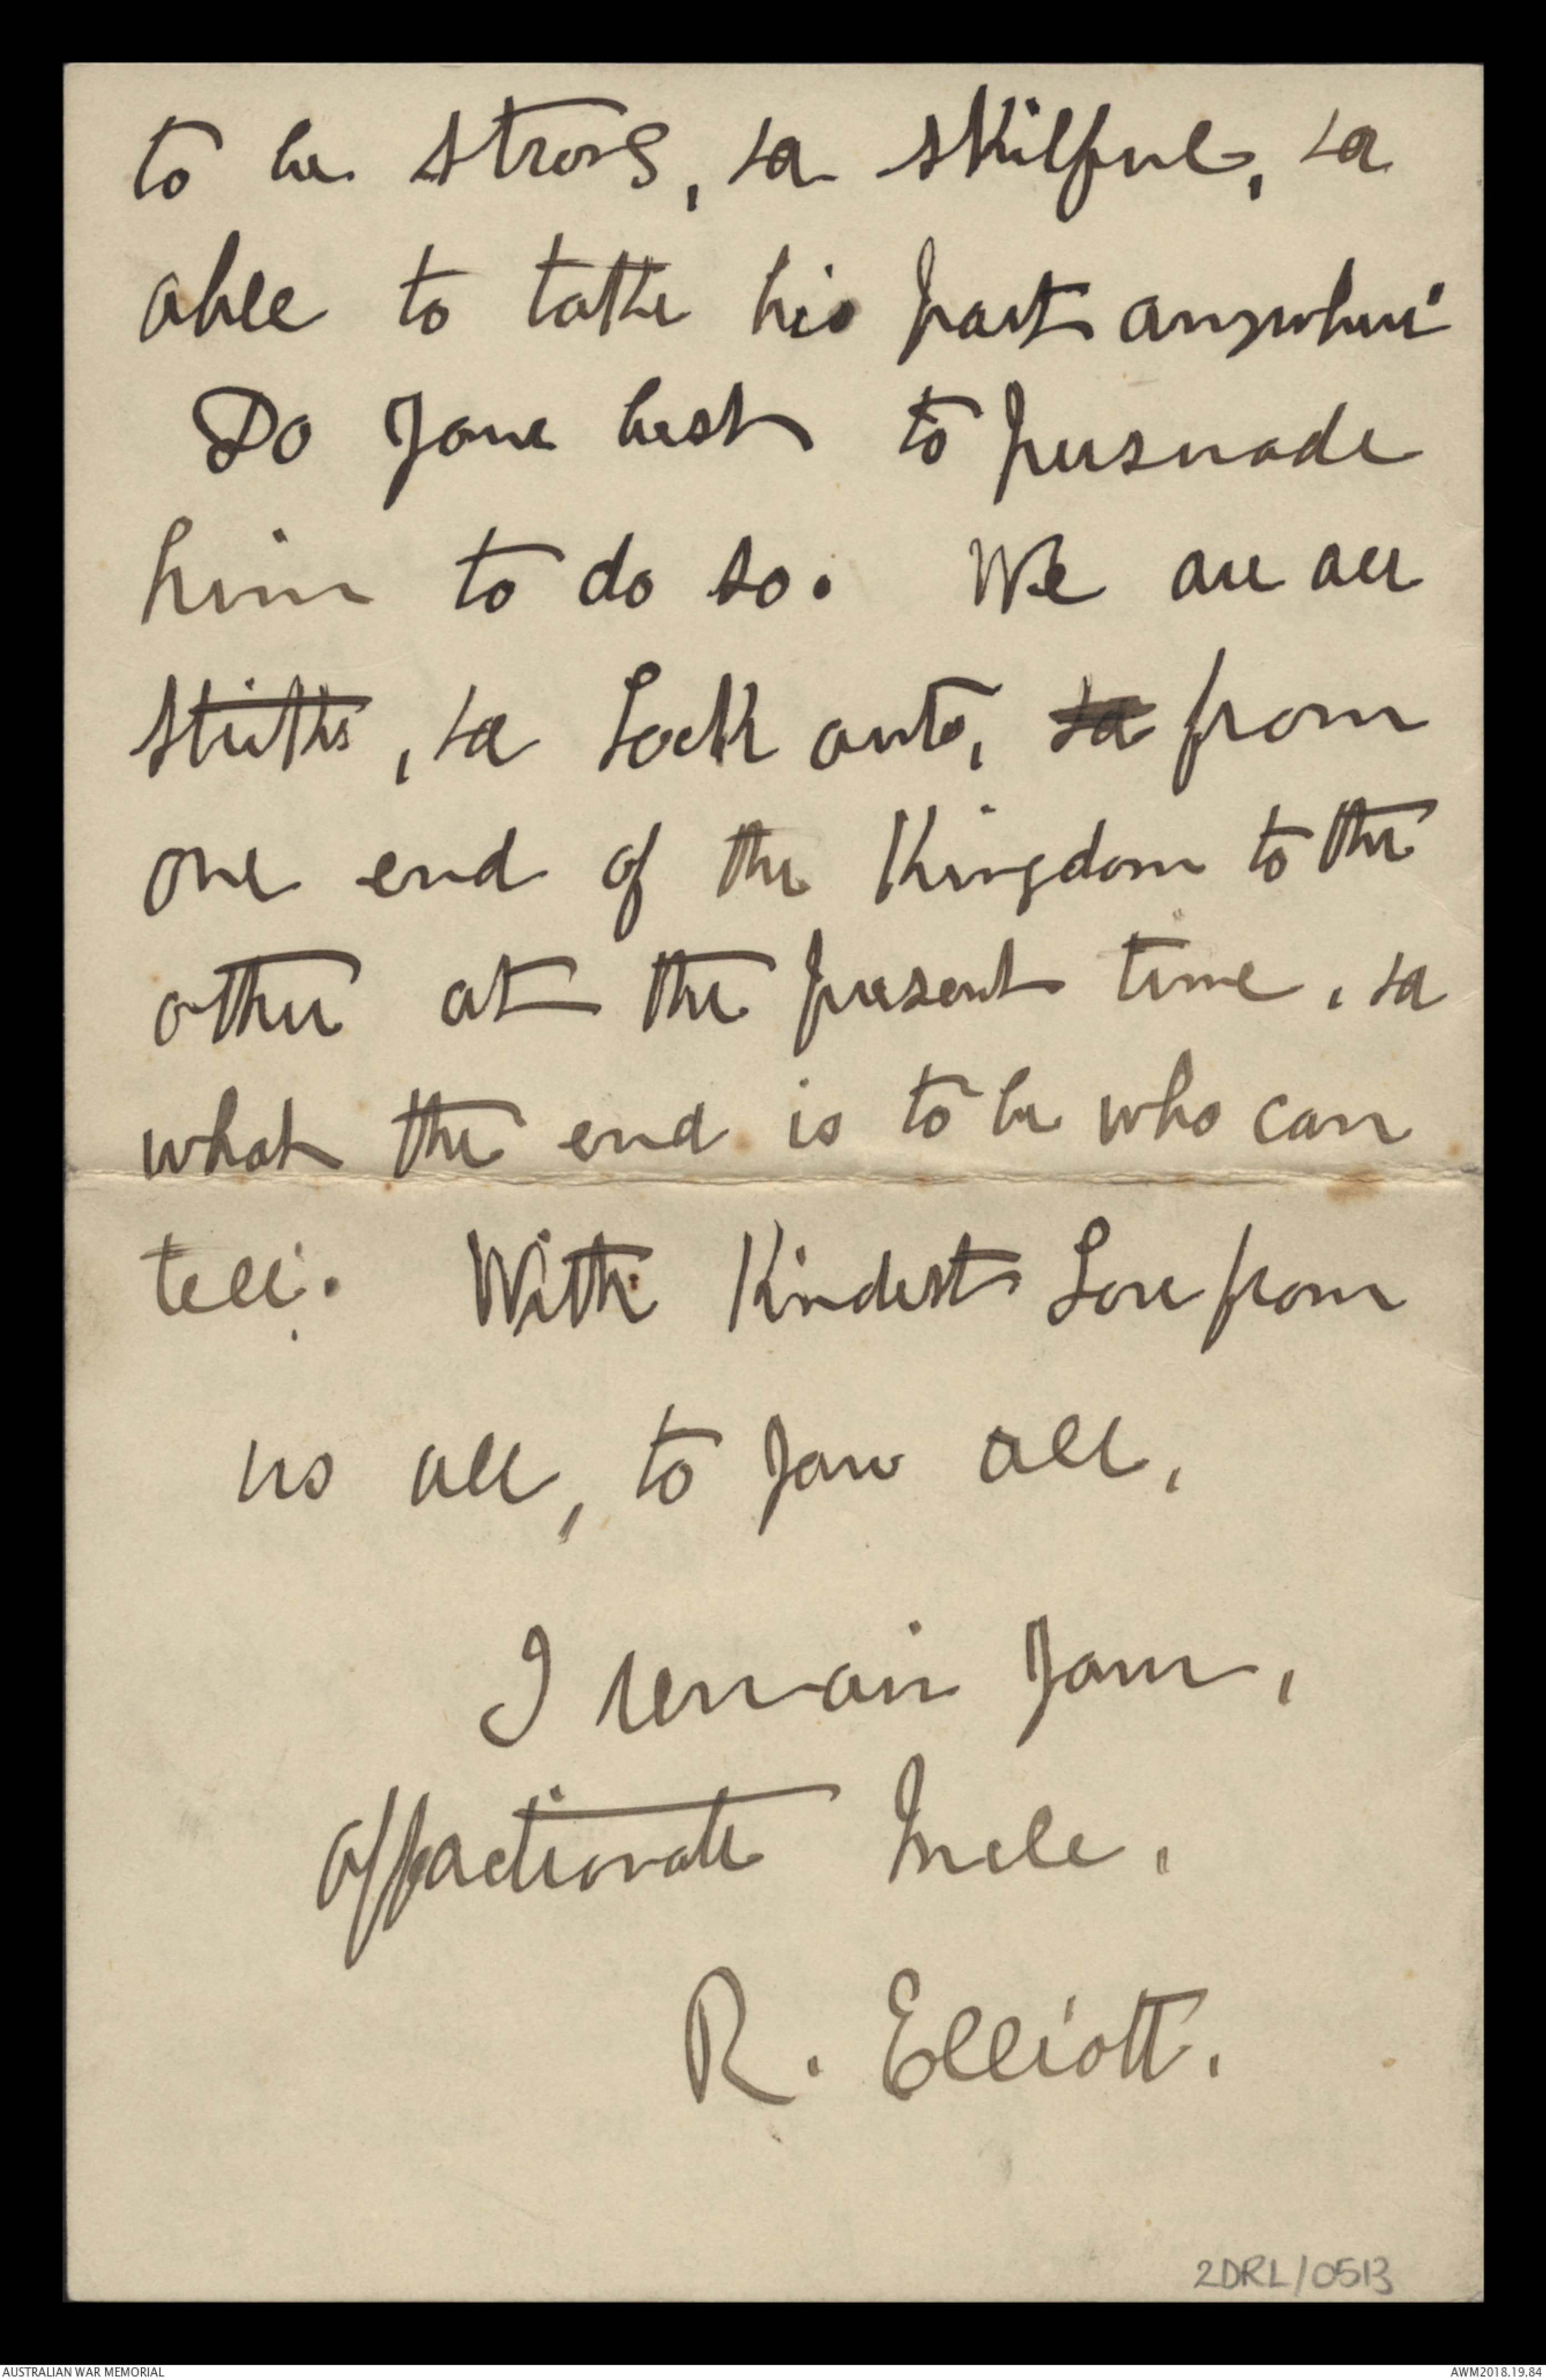 to be strong, & skilful, &
able to take his part anywhere
Do your best to persuade
him to do so. We are all
strikes, & Lock outs, & from
one end of the Kingdom to the
other at the present time, &
what the end is to be who can
tell. With Kindest Love from
us all, to you all,
I remain your,
affectionate Uncle,
R. Elliott.
2DRL/0513
AUSTRALIAN WAR MEMORIAL
AWM2018.19.84